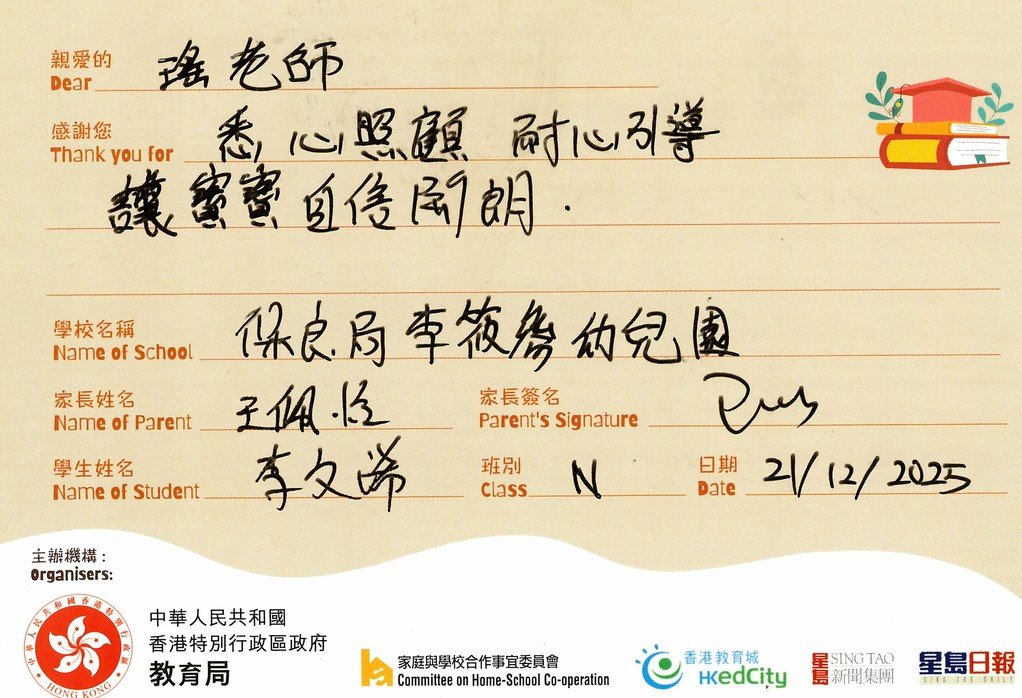 親愛的
Dear 瑤老師
感謝您
Thank you for 悉心照顧 耐心引導
讓寶寶自信開朗.
學校名稱
Name of School 保良局李筱參幼兒園
家長姓名
Name of Parent 王佩怡
家長簽名
Parent's Signature
學生姓名
Name of Student 李文
班別
Class N
日期
Date 21/12/2025
主辦機構:
Organisers:
中華人民共和國香港特別行政區
HONG KONG
中華人民共和國
香港特別行政區政府
教育局
家庭與學校合作事宜委員會
Committee on Home-School Co-operation
香港教育城
HKedCity
星島 SING TAO
新聞集團
星島日報
SING TAO DAILY